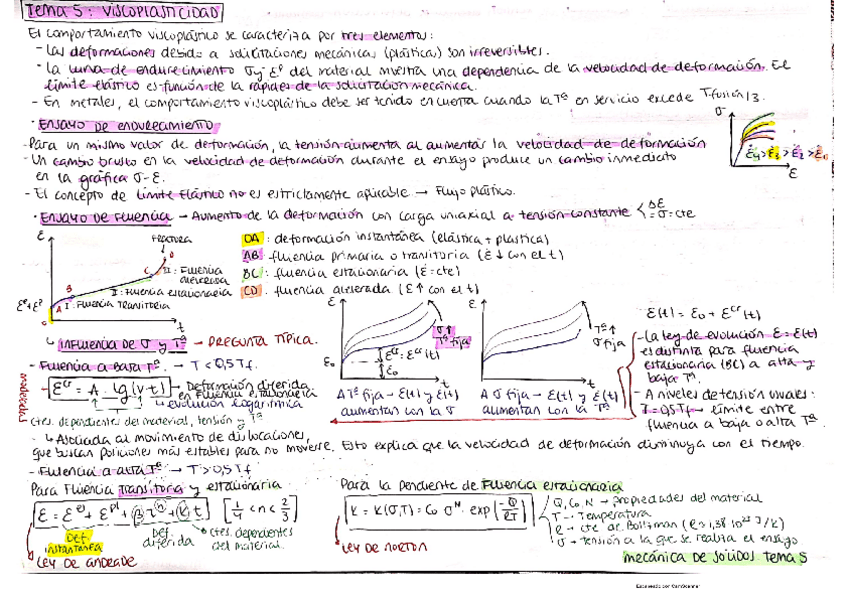 TEMA 5: VISCOPLASTICIDAD
El comportamiento viscoplástico se caracteriza por tres elementos:
- Las deformaciones debido a solicitaciones mecánicas (plásticas) son irreversibles.
- La curva de endurecimiento σy-εp del material muestra una dependencia de la velocidad de deformación. El
límite elástico es función de la rapidez de la solicitación mecánica.
- En metales, el comportamiento viscoplástico debe ser tenido en cuenta cuando la Tª en servicio excede Tfusión/3.
· ENSAYO DE ENDURECIMIENTO
- Para un mismo valor de deformación, la tensión aumenta al aumentar la velocidad de deformación
- Un cambio brusco en la velocidad de deformación durante el ensayo produce un cambio inmediato
en la gráfica σ-ε.
- El concepto de límite elástico no es estrictamente aplicable → Flujo plástico.
σ
ε̇4>ε̇3>ε̇2>ε̇1
ε
· ENSAYO DE FLUENCIA → Aumento de la deformación con carga uniaxial a tensión constante
Δε
σ=cte
ε
FRACTURA
D
C
B
A
εe+εp
III: Fluencia acelerada
II: Fluencia estacionaria
I: Fluencia Transitoria
t
OA: deformación instantánea (elástica + plástica)
AB: fluencia primaria o transitoria (ε̇↓ con el t)
BC: fluencia estacionaria (ε̇=cte)
CD: fluencia acelerada (ε̇↑ con el t)
↳ INFLUENCIA DE σ y Tª → PREGUNTA TÍPICA.
- Fluencia a baja Tª. → T<0,5Tf.
- εcr = A · lg(vt) → Deformación diferida en fluencia estacionaria
→ evolución logarítmica
ctes. dependientes del material, tensión y Tª
ε
σ↑
Tª fija
εcr = εcr(t)
ε0
t
A Tª fija → ε(t) y ε̇(t)
aumentan con la σ
ε
Tª↑
σ fija
t
A σ fija → ε(t) y ε̇(t)
aumentan con la Tª
ε(t) = ε0 + εcr(t)
- La ley de evolución ε=ε(t)
es distinta para fluencia
estacionaria (BC) a alta y
baja Tª.
- A niveles de tensión usuales:
T=0,5Tf → límite entre
fluencia a baja o alta Tª.
↳ Asociada al movimiento de dislocaciones,
que buscan posiciones más estables para no moverse. Esto explica que la velocidad de deformación disminuya con el tiempo.
- Fluencia a alta Tª → T>0,5Tf
Para Fluencia Transitoria y estacionaria
ε = εel + εpl + β tn + k t
[1/4 < n < 2/3]
Def. instantánea
Def. diferida
ctes. dependientes del material.
LEY DE ANDRADE
Para la pendiente de Fluencia estacionaria
K = K(σ,T) = C0 σN · exp(-Q/RT)
LEY DE NORTON
Q, C0, N → propiedades del material
T → Temperatura
R → cte de Boltzman
σ → tensión a la que se realiza el ensayo
MECÁNICA DE SÓLIDOS TEMA 5
Escaneado con CamScanner